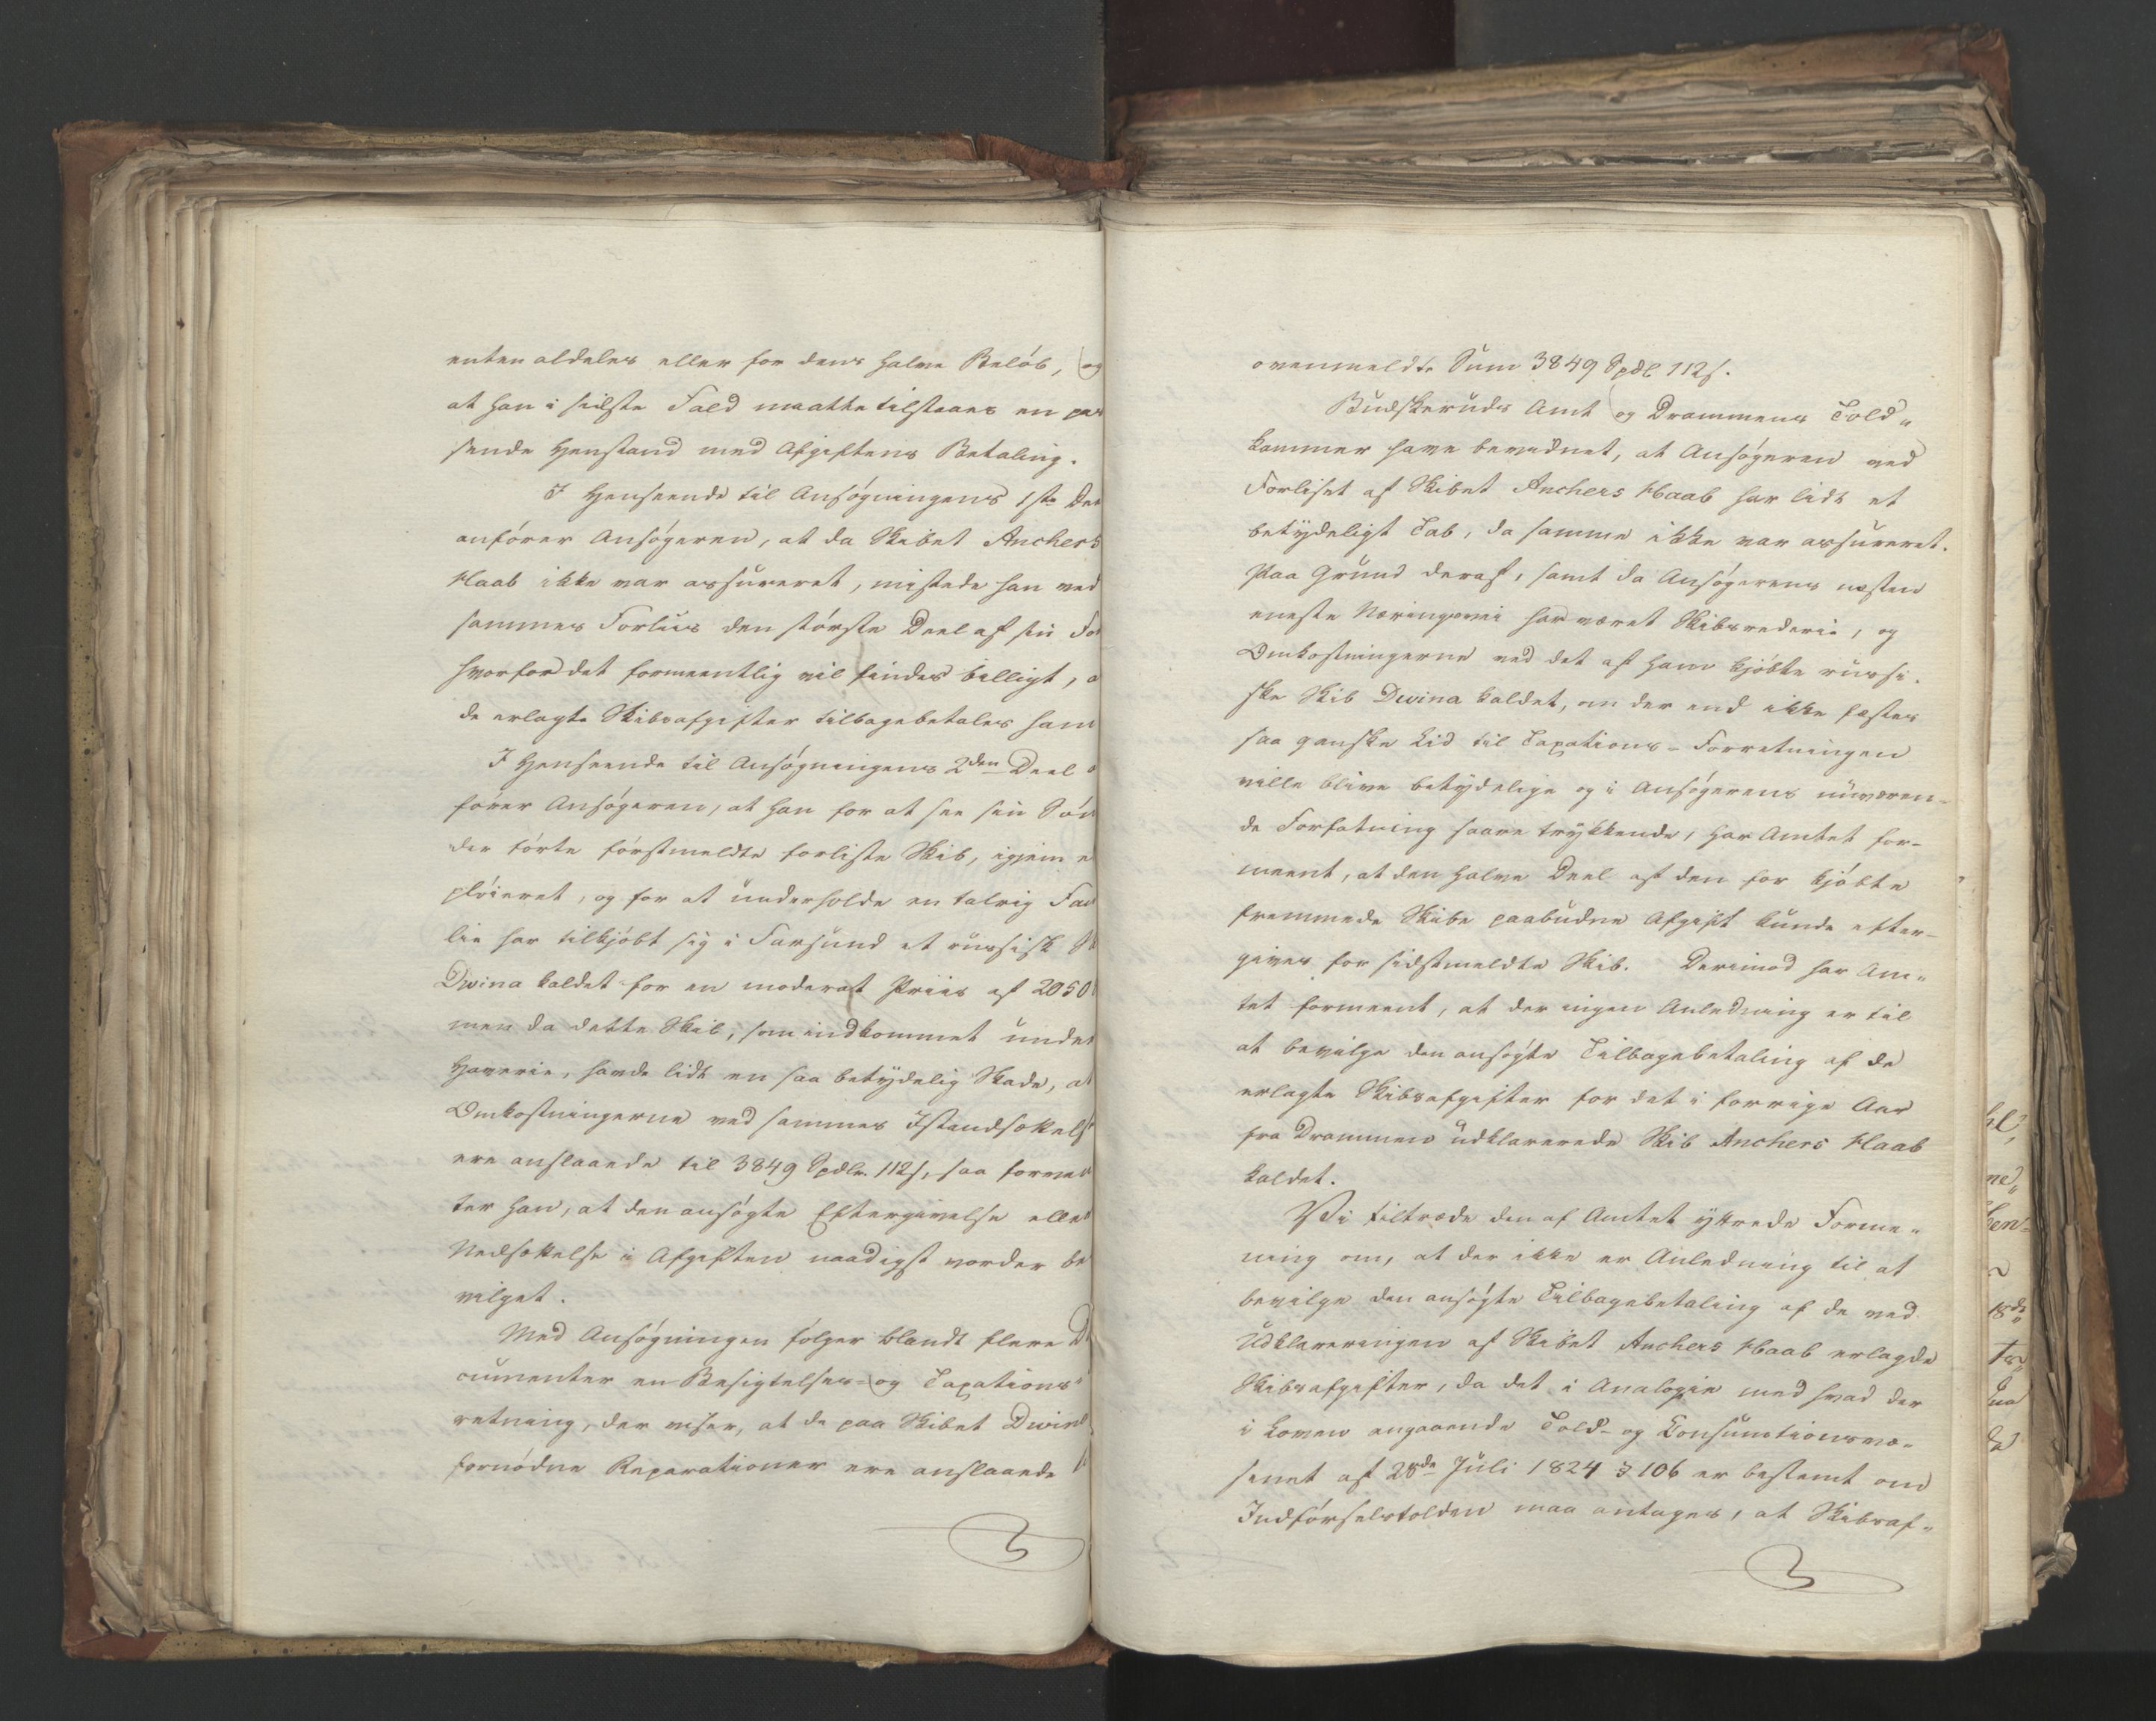 enten aldeles eller for dens halve Beløb, og
at han i sidste Fald maatte tilstaaes en pas
sende Henstand med Afgiftens Betaling.
I Henseende til Ansøgningens 1ste Dee
anfører Ansøgeren, at da Skibet Anchers
Haab ikke var assureret, mistede han ved
sammes Forliis den største Deel af sin Fo
hvorfor det formeentlig vil findes billigt, a
de erlagte Skibsafgifter tilbagebetales ham
I Henseende til Ansøgningens 2den Deel a
fører Ansøgeren, at han for at see sin Søn
der førte førstmeldte forliste Skib, igjen e
ploieret, og for at underholde en talrig Fam
lie har tilkjøbt sig i Farsund et russisk Sk
Dwina kaldet for en moderat Priis af 2050
men da dette Skib, som indkommet under
Haverie, havde lidt en saa betydelig Skade, at
Omkostningerne ved sammes Istandsættels
ere anslaaede til 3849 Spdlr 112 s, saa formee
ter han, at den ansøgte Eftergivelse eller
Nedsættelse i Afgiften naadigst vorder be
vilget.
Med Ansøgningen følger blandt flere D
cumenter en Besigtelses- og Taxations-
retning, der viser, at de paa Skibet Dwina
fornødne Reparationer ere anslaaede
ovenmeldte Sum 3849 Spdl 112 s.
Budskeruds Amt og Drammens Told„
kammer have bevidnet, at Ansøgeren ved
Forliset af Skibet Anchers Haab har lidt et
betydeligt Tab, da samme ikke var assureret.
Paa Grund deraf, samt da Ansøgerens næsten
eneste Næringsvei har været Skibsrederie, og
Omkostningerne ved det af ham kjøbte russi-
ske Skib Dwina kaldet, om der end ikke fæstes
saa ganske Lid til Taxations-Forretningen
ville blive betydelige og i Ansøgerens nuværen-
de Forfatning saare trykkende, har Amtet for-
meent, at den halve Deel af den for kjøbte
fremmede Skibe paabudne Afgift kunde efter-
gives for sidstmeldte Skib. Derimod har Am„
tet formeent, at der ingen Anledning er til
at bevilge den ansøgte Tilbagebetaling af de
erlagte Skibsafgifter for det i forrige Aar
fra Drammen udklarerede Skib Anchers Haab
kaldet.
Vi tiltræde den af Amtet yttrede Forme„
ning om, at der ikke er Anledning til at
bevilge den ansøgte Tilbagebetaling af de ved
Udklareringen af Skibet Anchers Haab erlagde
Skibsafgifter, da det i Analogie med hvad der
i Loven angaaende Told- og Consumtionsvæ-
senet af 28de Juli 1824 § 106 er bestemt om
Indførselstolden maa antages, at Skibsaf„